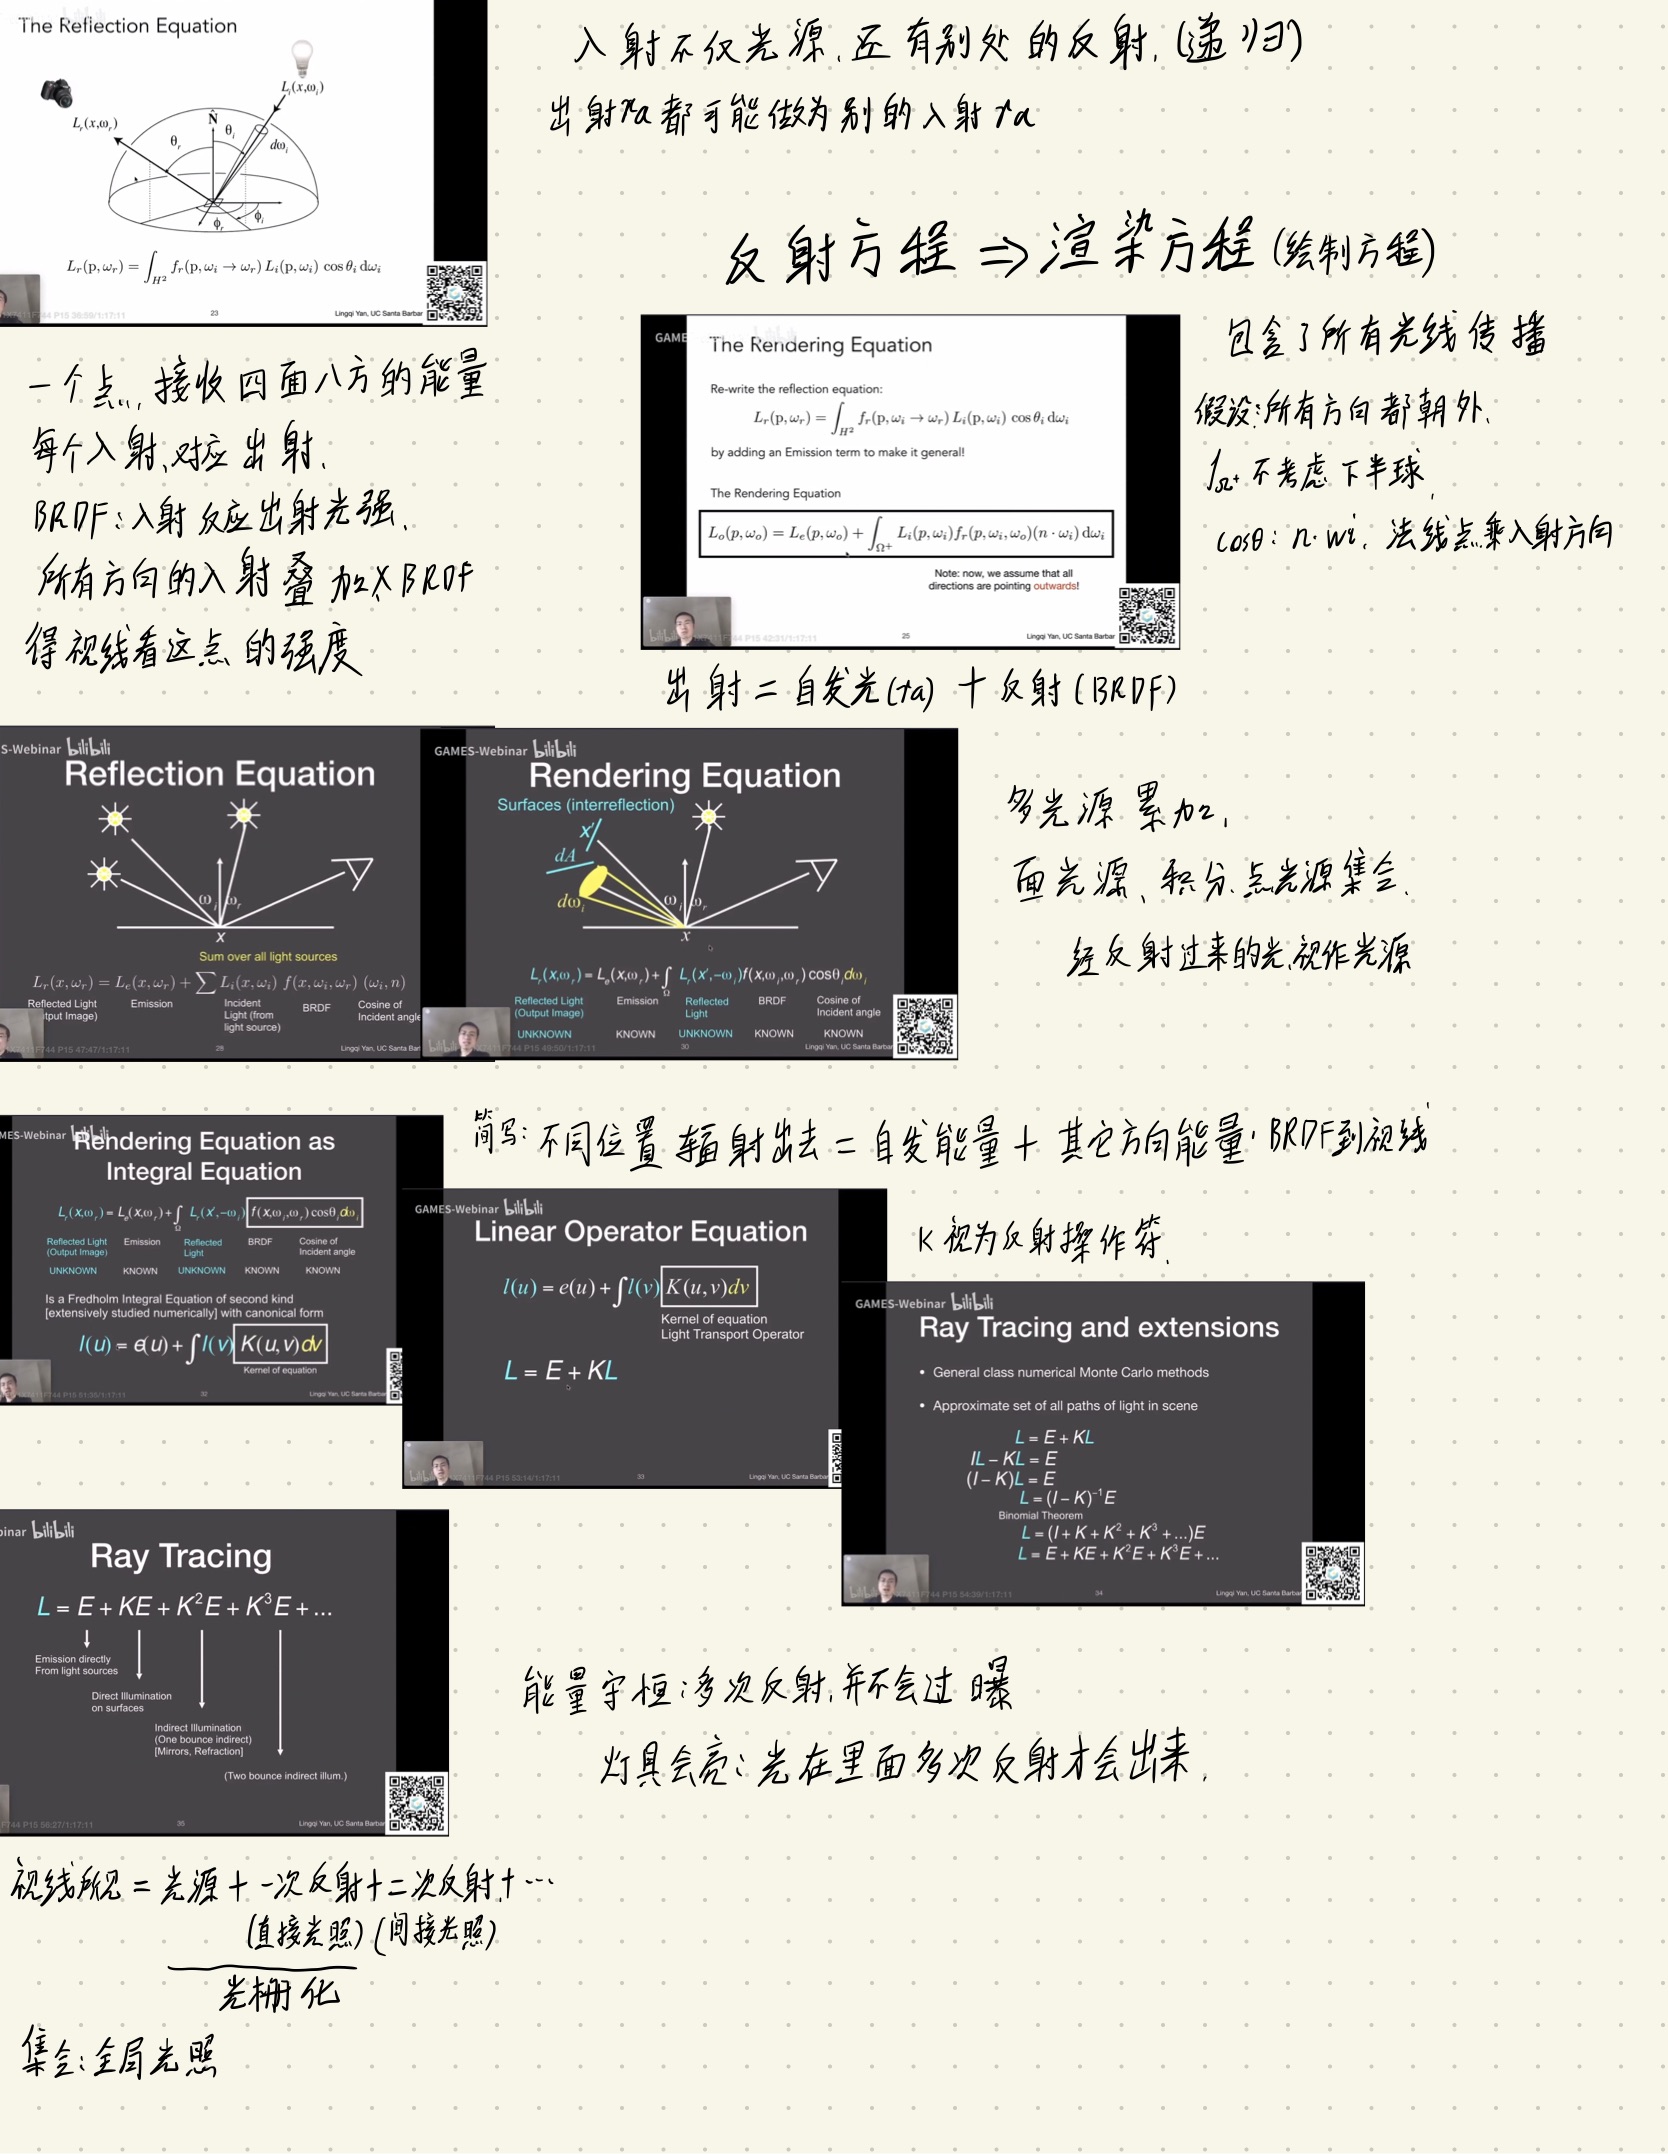 The Reflection Equation
L_i(x,ω_i)
L_r(x,ω_r)
N̂
θ_r
θ_i
dω_i
ϕ_r
ϕ_i
L_r(p,ω_r) = ∫_{H²} f_r(p,ω_i → ω_r) L_i(p,ω_i) cos θ_i dω_i
P15 36:59/1:17:11
23
Lingqi Yan, UC Santa Barbar
入射不仅光源,还有别处的反射,(递归)
出射ra都可能做为别的入射ra
反射方程 ⇒ 渲染方程(绘制方程)
一个点,接收四面八方的能量
每个入射,对应出射,
BRDF:入射反应出射光强,
所有方向的入射叠加×BRDF
得视线看这点的强度
GAME
The Rendering Equation
Re-write the reflection equation:
L_r(p,ω_r) = ∫_{H²} f_r(p,ω_i → ω_r) L_i(p,ω_i) cos θ_i dω_i
by adding an Emission term to make it general!
The Rendering Equation
L_o(p,ω_o) = L_e(p,ω_o) + ∫_{Ω+} L_i(p,ω_i) f_r(p,ω_i,ω_o)(n · ω_i) dω_i
Note: now, we assume that all
directions are pointing outwards!
bilibili
P15 42:31/1:17:11
25
Lingqi Yan, UC Santa Barbar
包含了所有光线传播
假设:所有方向都朝外,
∫Ω+ 不考虑下半球,
cosθ: n·wi, 法线点乘入射方向
出射=自发光(ra)+反射(BRDF)
S-Webinar bilibili
Reflection Equation
ω_i
ω_r
x
Sum over all light sources
L_r(x,ω_r) = L_e(x,ω_r) + ∑ L_i(x,ω_i) f(x,ω_i,ω_r) (ω_i,n)
Reflected Light
tput Image)
Emission
Incident
Light (from
light source)
BRDF
Cosine of
Incident angle
P15 47:47/1:17:11
28
Lingqi Yan, UC Santa Bar
GAMES-Webinar bilibili
Rendering Equation
Surfaces (interreflection)
x′
dA
dω_i
ω_i
ω_r
x
L_r(x,ω_r) = L_e(x,ω_r) + ∫_Ω L_r(x′,−ω_i) f(x,ω_i,ω_r) cosθ_i dω_i
Reflected Light
(Output Image)
Emission
Reflected
Light
BRDF
Cosine of
Incident angle
UNKNOWN KNOWN UNKNOWN KNOWN KNOWN
bilibili
P15 49:50/1:17:11
30
Lingqi Yan, UC Santa Barbar
多光源累加,
面光源、积分.点光源集合.
经反射过来的光,视作光源
MES-Webinar bilibili
Rendering Equation as
Integral Equation
L_r(x,ω_r) = L_e(x,ω_r) + ∫_Ω L_r(x′,−ω_i) f(x,ω_i,ω_r) cosθ_i dω_i
Reflected Light
(Output Image)
Emission
Reflected
Light
BRDF
Cosine of
Incident angle
UNKNOWN KNOWN UNKNOWN KNOWN KNOWN
Is a Fredholm Integral Equation of second kind
[extensively studied numerically] with canonical form
l(u) = e(u) + ∫ l(v) K(u,v)dv
Kernel of equation
P15 51:35/1:17:11
32
Lingqi Yan, UC Santa Barbar
简写:不同位置辐射出去=自发能量+其它方向能量·BRDF到视线
GAMES-Webinar bilibili
Linear Operator Equation
l(u) = e(u) + ∫ l(v) K(u,v)dv
Kernel of equation
Light Transport Operator
L = E + KL
bilibili
P15 53:14/1:17:11
33
Lingqi Yan, UC Santa Barbar
K视为反射操作符.
GAMES-Webinar bilibili
Ray Tracing and extensions
• General class numerical Monte Carlo methods
• Approximate set of all paths of light in scene
L = E + KL
IL − KL = E
(I − K)L = E
L = (I − K)⁻¹E
Binomial Theorem
L = (I + K + K² + K³ + ...)E
L = E + KE + K²E + K³E + ...
bilibili
34
Lingqi Yan, UC Santa Barbar
inar bilibili
Ray Tracing
L = E + KE + K²E + K³E + ...
Emission directly
From light sources
Direct Illumination
on surfaces
Indirect Illumination
(One bounce indirect)
[Mirrors, Refraction]
(Two bounce indirect illum.)
P15 56:27/1:17:11
Lingqi Yan, UC Santa Barbar
能量守恒:多次反射,并不会过曝
灯具会亮:光在里面多次反射才会出来.
视线所见=光源+一次反射+二次反射+…
(直接光照)(间接光照)
光栅化
集合:全局光照